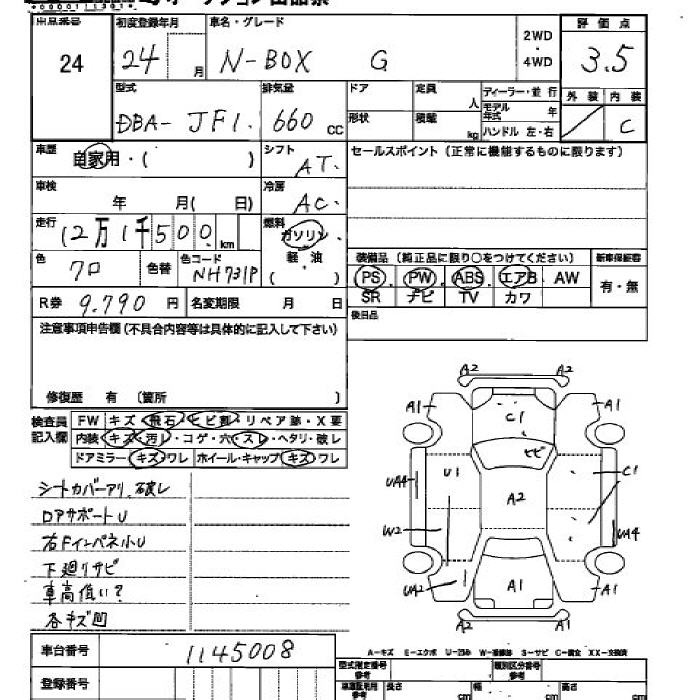 出品番号 24
初度登録年月 24 月
車名・グレード N-BOX G
2WD ・ 4WD
評価点 3.5
外装 内装 C
型式 DBA- JF1.
排気量 660 CC
ドア 定員 人
形状 積載 kg
ディーラー・並行
モデル年式 年
ハンドル 左・右
車歴 自家用・( )
シフト AT.
セールスポイント(正常に機能するものに限ります)
車検 年 月( 日)
冷房 AC.
走行 12万1千500 km
燃料 ガソリン・軽・油 ( )
色 クロ 色替 色コード NH731P
装備品 (純正品に限り○をつけてください) 新車保証書
PS ・ PW ・ ABS ・ エアB AW 有・無
SR ナビ TV カワ
R券 9.790 円 名変期限 月 日
後日品
注意事項申告欄(不具合内容等は具体的に記入して下さい)
修復歴 有 〔箇所 〕
検査員記入欄
FW キズ・飛石・ヒビ割・リペア跡・X要
内装 キズ・汚レ・コゲ・穴・スレ・ヘタリ・破レ
ドアミラー キズ・ワレ ホイール・キャップ キズ・ワレ
シートカバーアリ、破レ
DアサポートU
右FインパネホU
下廻りサビ
車高低い?
各キズ凹
A2 A2
A1 A1
C1
ヒビ
UA4 U1 C1
A2
W2 UA4
UA2 A1 A1
A2 A1
車台番号 1145008
A-キズ E-エクボ U-凹み W-補修跡 S-サビ C-腐食 XX-交換済
登録番号
型式指定番号 類別区分番号
長さ cm 幅 cm 高さ cm